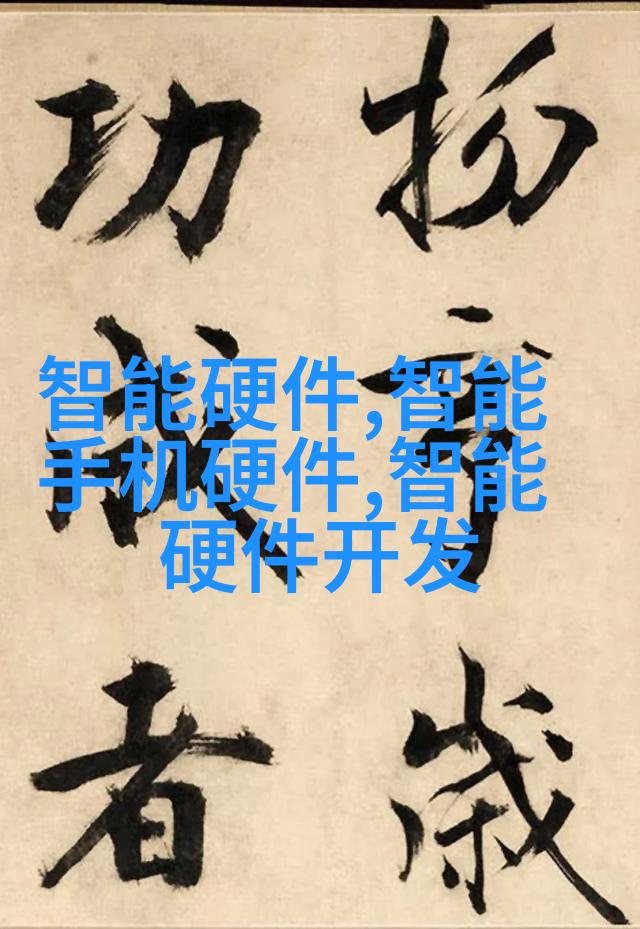 歲
功成者
智能硬件,智能
手机硬件,智能
硬件开发